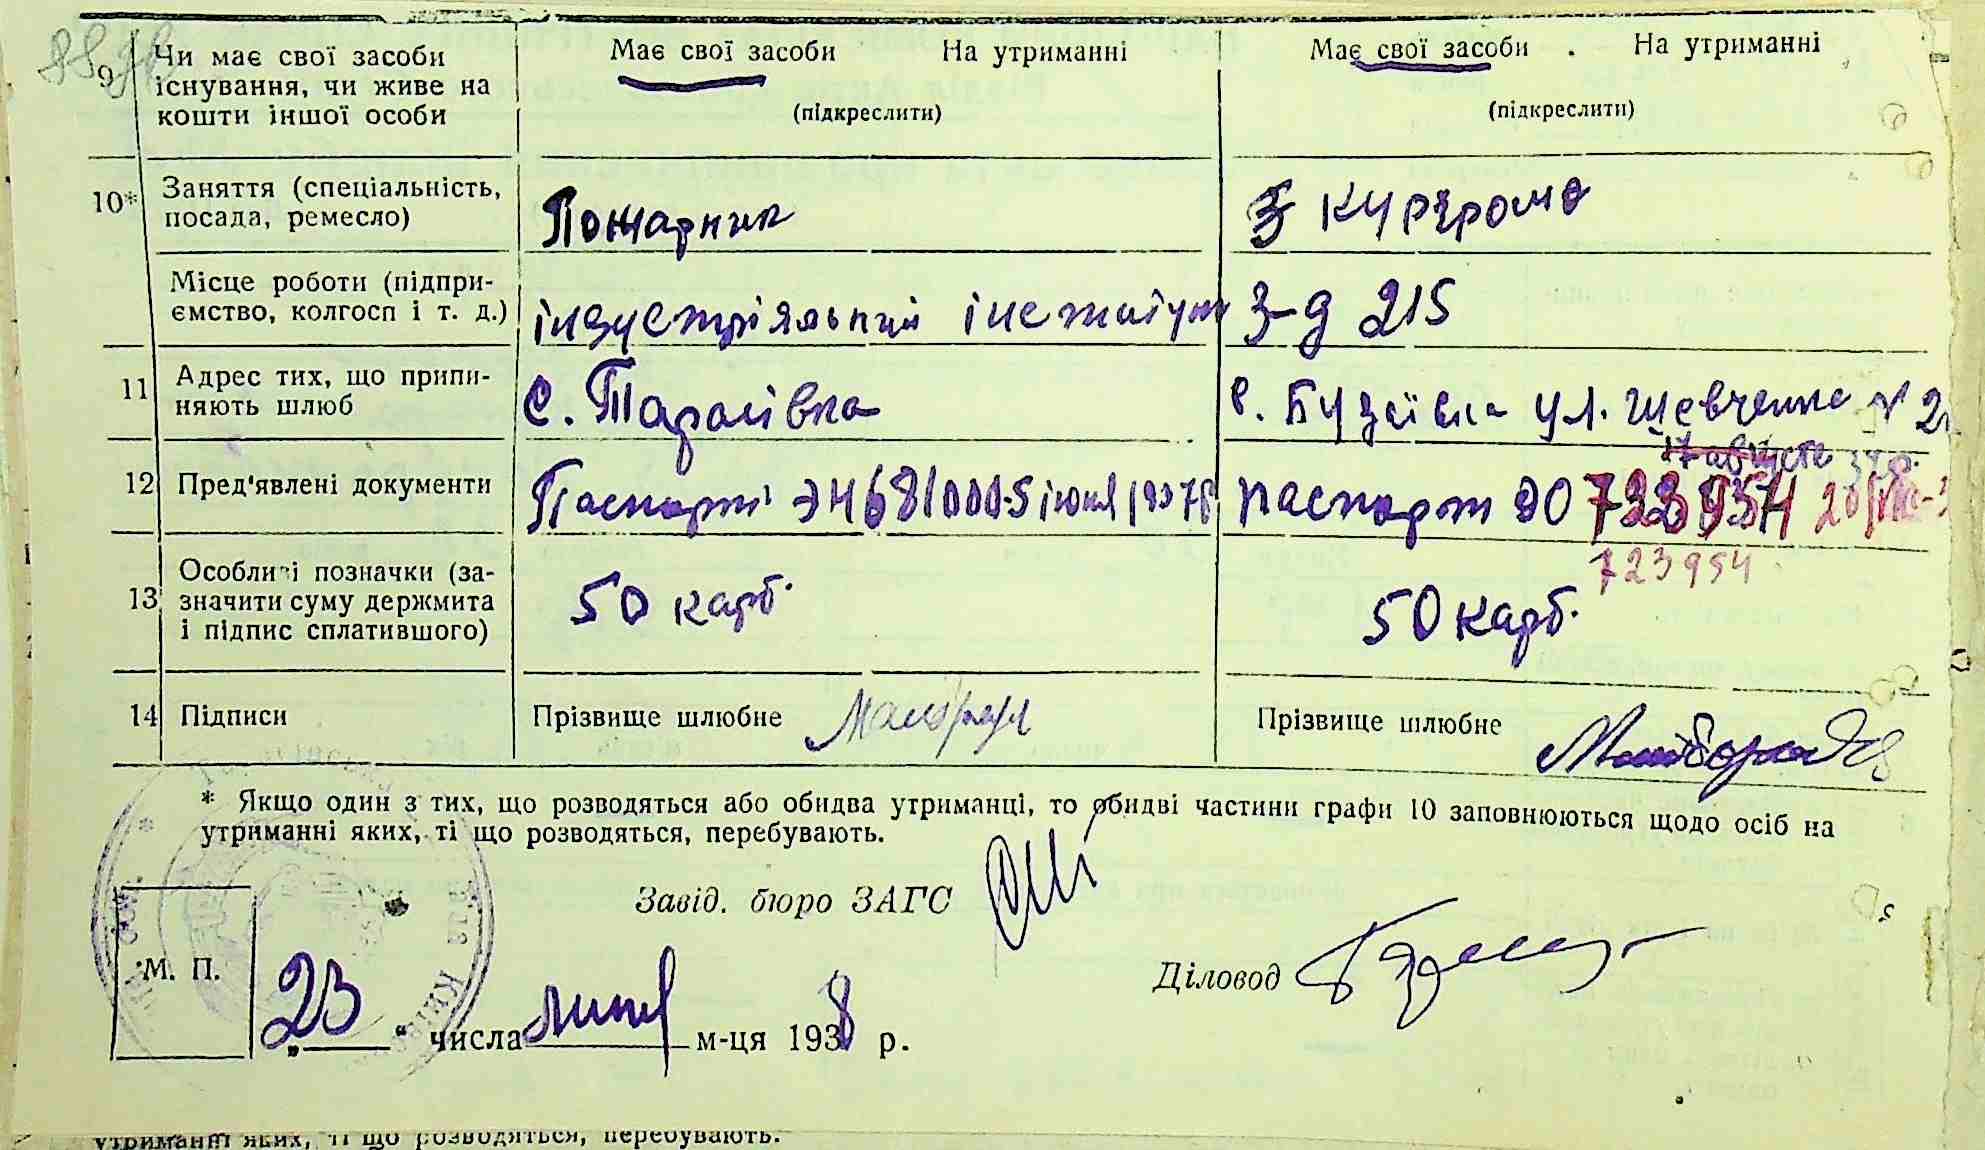 9 Чи має свої засоби існування, чи живе на кошти іншої особи
Має свої засоби На утриманні
(підкреслити)
Має свої засоби . На утриманні
(підкреслити)
10* Заняття (спеціальність, посада, ремесло)
Пожарник
Місце роботи (підпри-
ємство, колгосп і т. д.)
індустріяльний інститут
З-д 215
11 Адрес тих, що припи-
няють шлюб
с. Тарасівка
с. Бузівка ул. Шевченка N 2
12 Пред'явлені документи
Паспорт
августа
паспорт ЭО 723954
723954
13 Особливі позначки (за-
значити суму держмита
і підпис сплатившого)
50 карб.
50 карб.
14 Підписи
Прізвище шлюбне
Прізвище шлюбне
* Якщо один з тих, що розводяться або обидва утриманці, то обидві частини графи 10 заповнюються щодо осіб на
утриманні яких, ті що розводяться, перебувають.
Завід. бюро ЗАГС
Діловод
М. П.
„23“ числа липня м-ця 1938 р.
утриманні яких, ті що розводяться, перебувають.